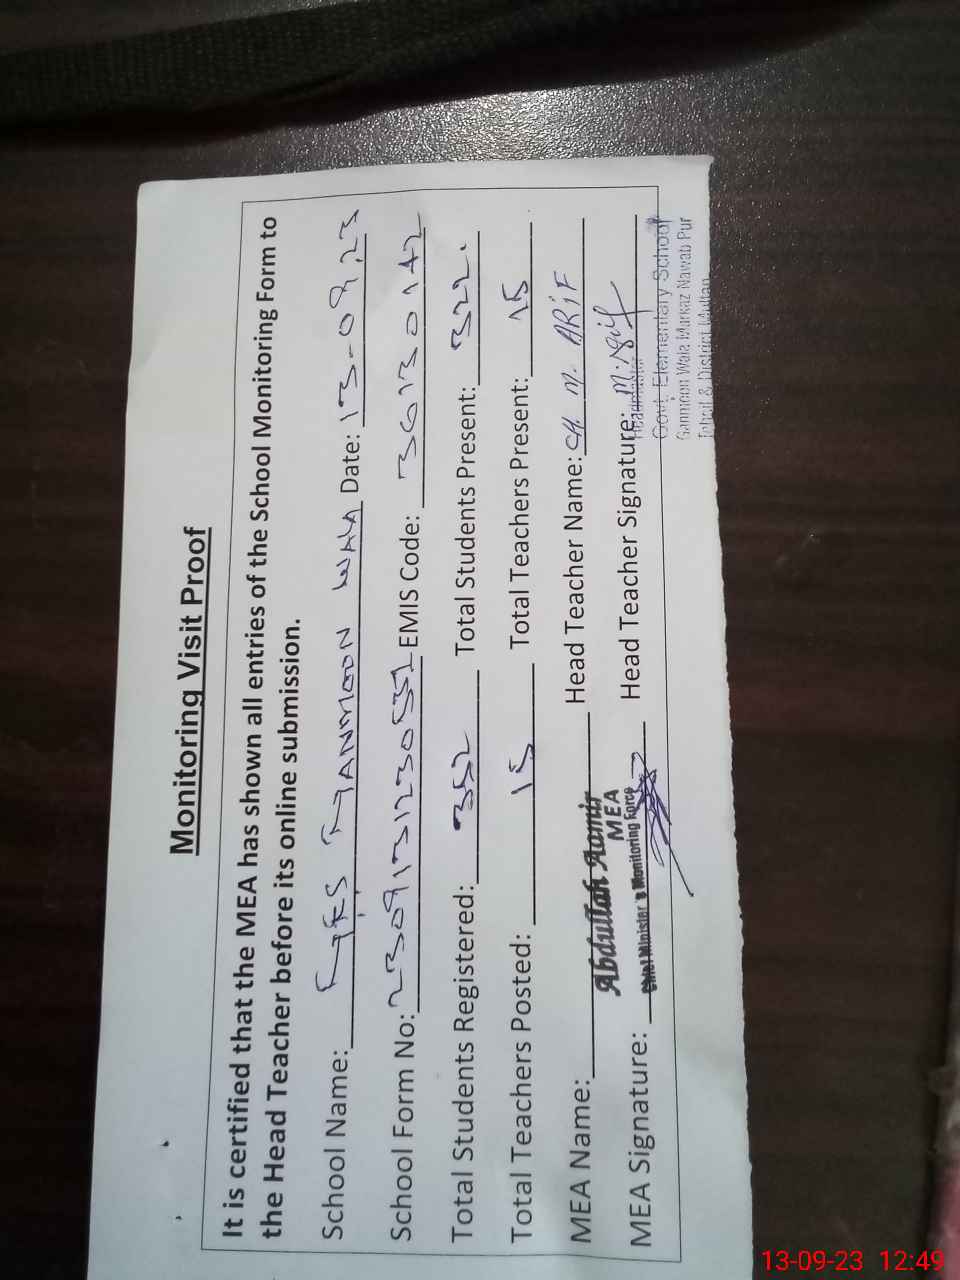 Monitoring Visit Proof
It is certified that the MEA has shown all entries of the School Monitoring Form to
the Head Teacher before its online submission.
School Name: GES GANMOON WALA Date: 13-09-23
School Form No: EMIS Code: 36130142
Total Students Registered: 352 Total Students Present: 322.
Total Teachers Posted: 15 Total Teachers Present: 15
MEA Name: Abdullah Aamir Head Teacher Name: CH. M. ARiF
MEA
Chief Minister's Monitoring Force
MEA Signature: Head Teacher Signature: M. Arif
Headmaster
Govt. Elementary School
Ganmoon Wala Markaz Nawab Pur
Tehsil & District Multan
13-09-23 12:49